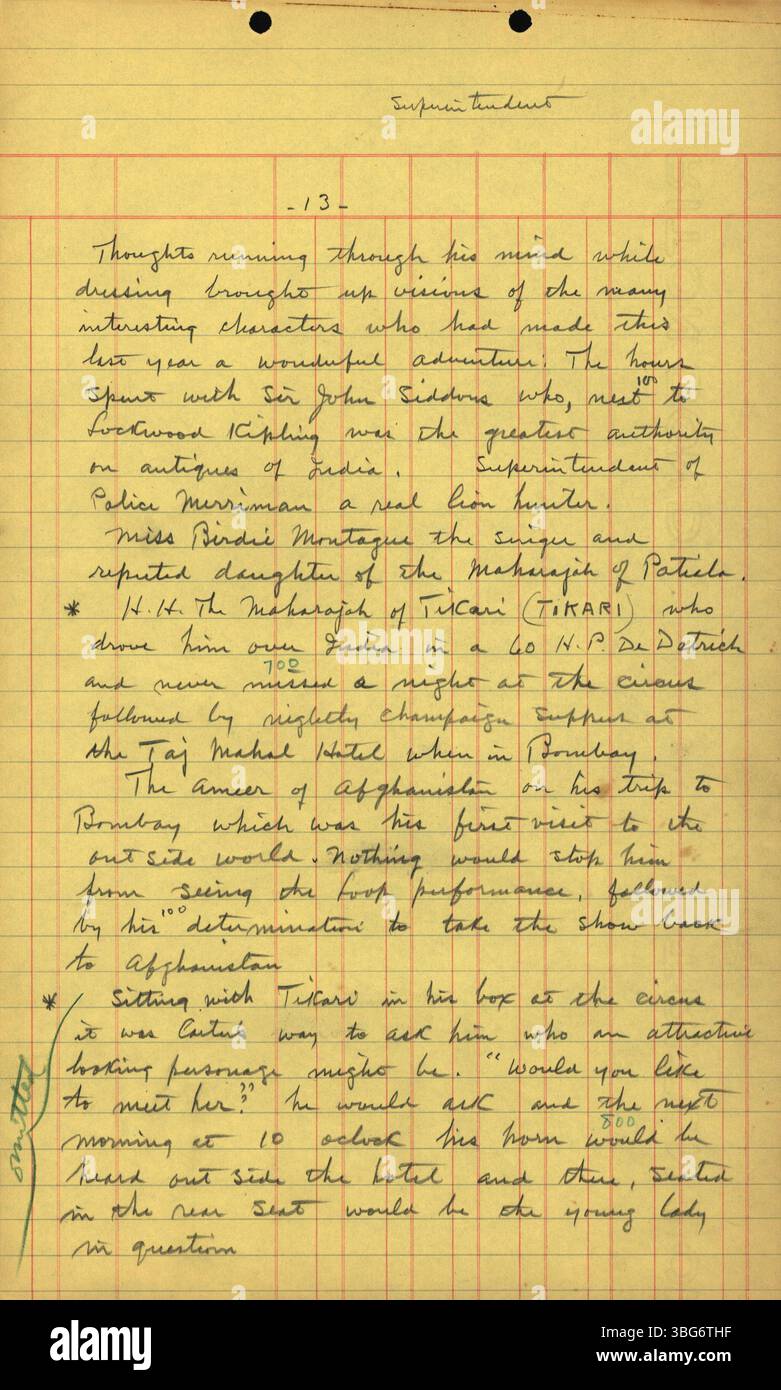 Superintendent
-13-
Thoughts running through his mind while
dressing brought up visions of the many
interesting characters who had made this
last year a wonderful adventure. The hours
100
spent with Sir John Siddons who, next to
Lockwood Kipling was the greatest authority
on antiques of India. Superintendent of
Police Merriman a real lion hunter.
Miss Birdie Montague the singer and
reputed daughter of the Maharajah of Patiala.
* H.H. The Maharajah of Tikari (TIKARI) who
drove him over India in a 60 H.P. De Detrich
700
and never missed a night at the circus
followed by nightly champaign suppers at
the Taj Mahal Hotel when in Bombay.
The Ameer of Afghanistan on his trip to
Bombay which was his first visit to the
outside world. Nothing would stop him
from seeing the Loop performance, followed
100
by his determination to take the show back
to Afghanistan
* Sitting with Tikari in his box at the circus
it was Carter's way to ask him who an attractive
looking personage might be. "Would you like
to meet her?" he would ask and the next
800
morning at 10 oclock his horn would be
heard out side the hotel and there, seated
in the rear seat would be the young lady
in question
omitted
alamy
a
a
alamy
a
alamy
Image ID: 3BG6THF
www.alamy.com